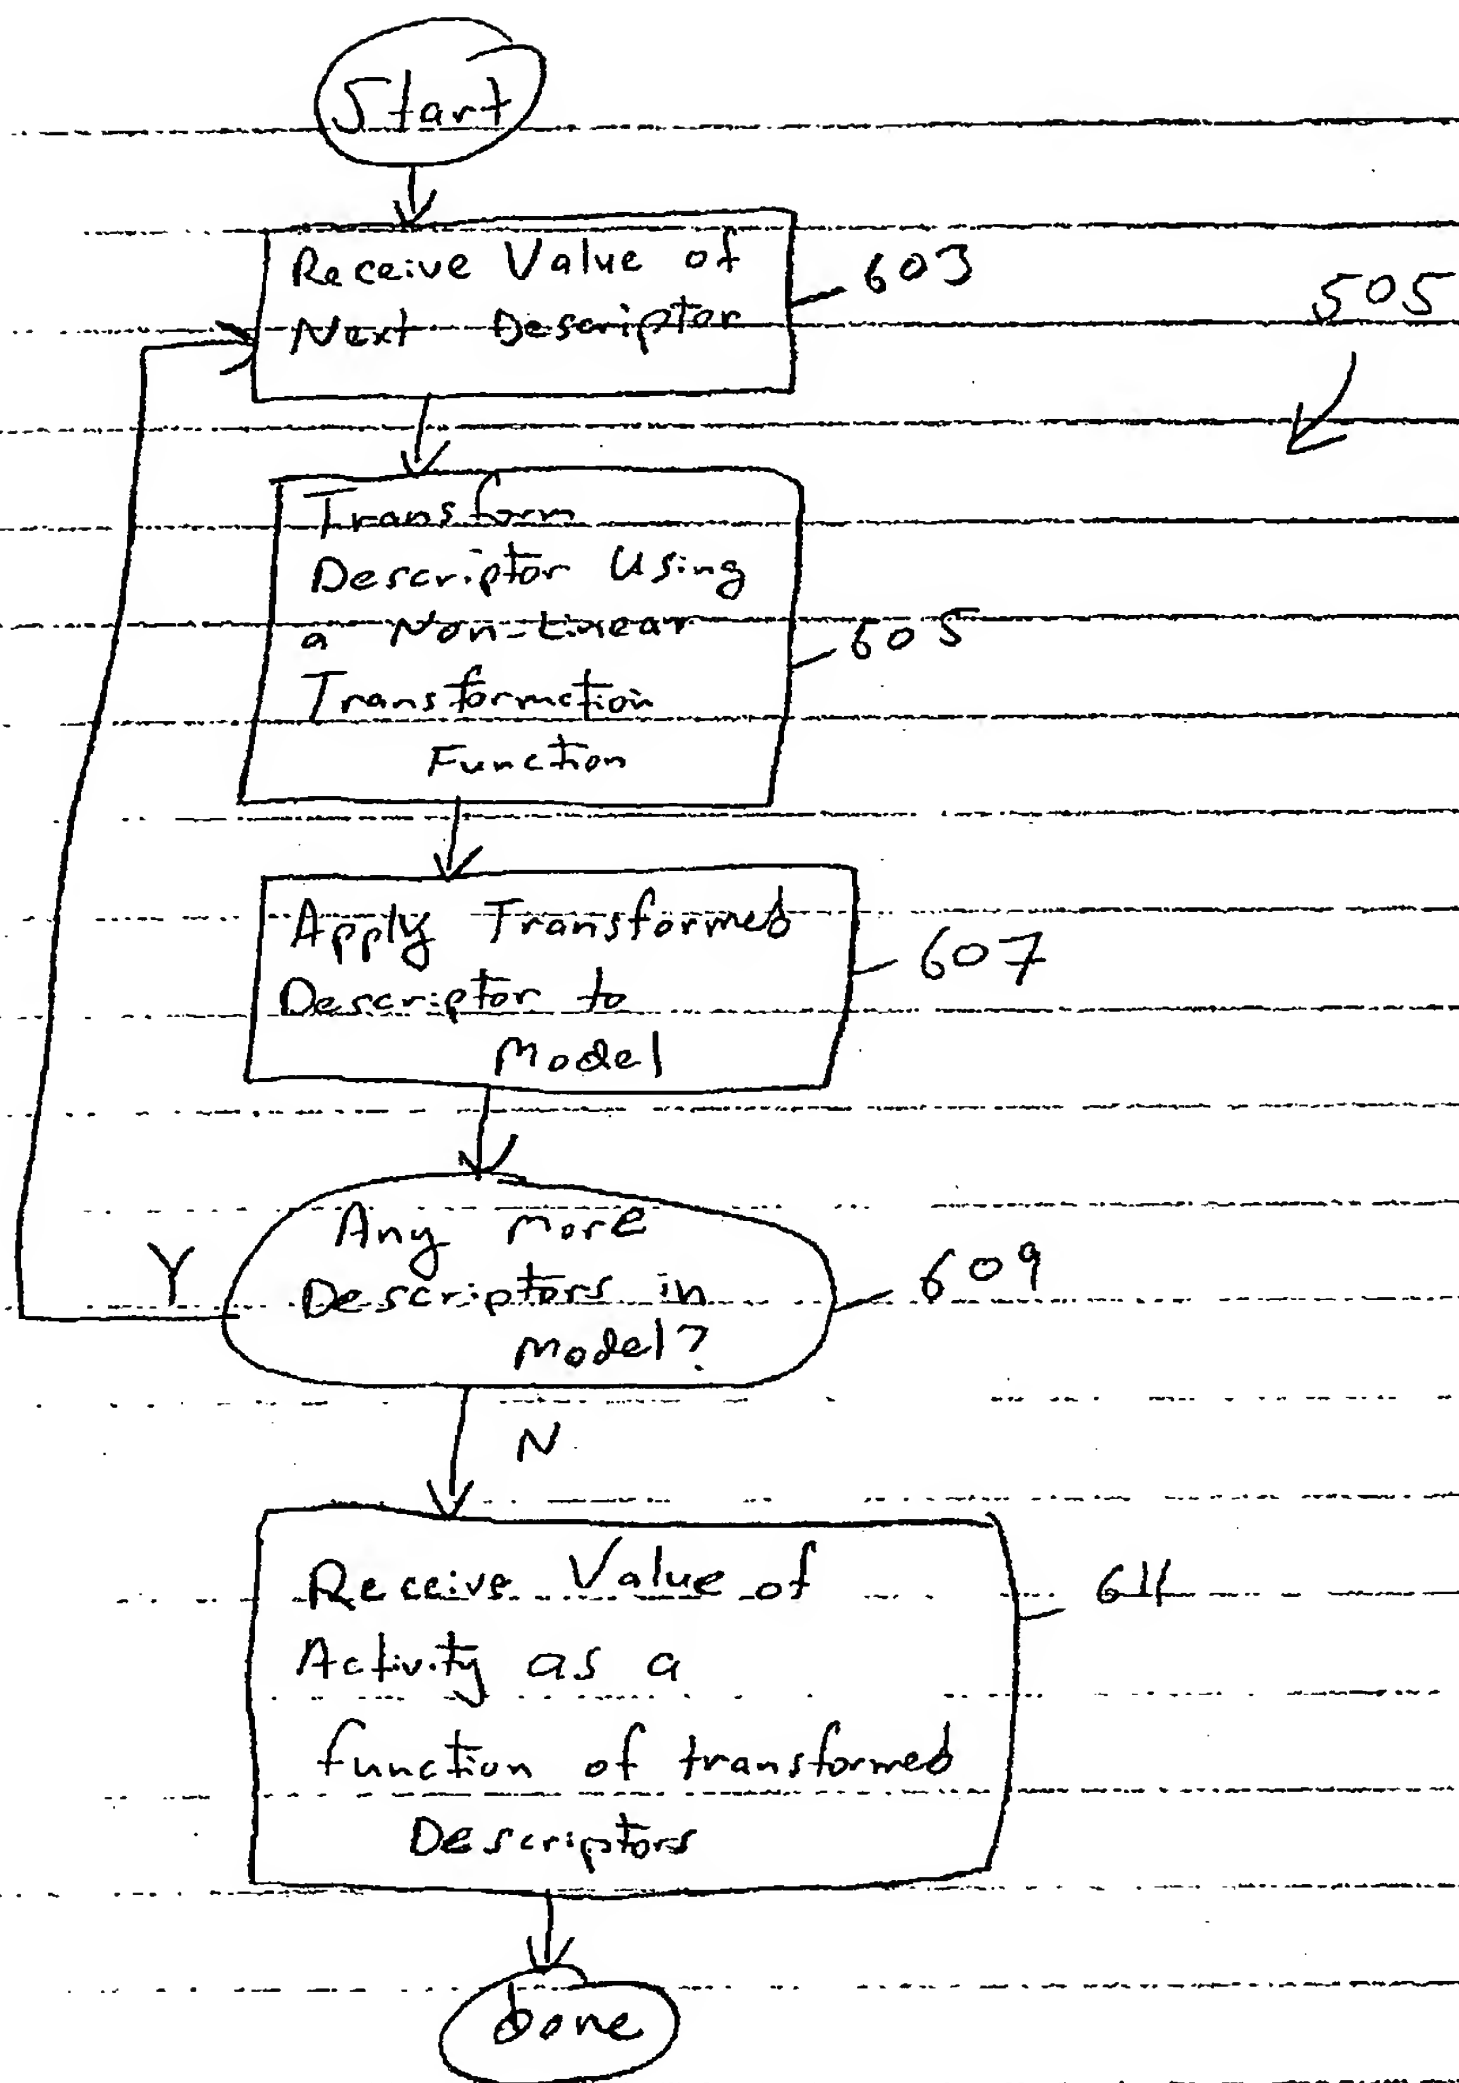 Start
Receive Value of
Next Descriptor
603
505
Transform
Descriptor Using
a Non-Linear
Transformation
Function
605
Apply Transformed
Descriptor to
Model
607
Any More
Descriptors in
Model?
609
Y
N
Receive Value of
Activity as a
function of transformed
Descriptors
611
Done